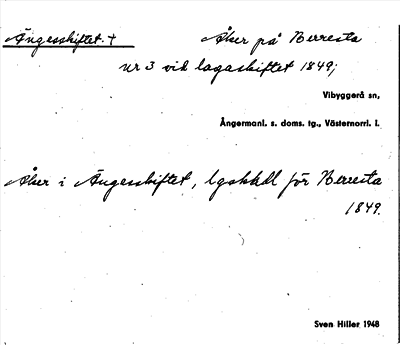 Ängesskiftet. + Åker på Berresta
nr 3 vid lagaskiftet 1849;
Vibyggerå sn,
Ångermanl. s. doms. tg., Västernorrl. l.
Åker i Ängesskiftet, lgskkdl för Berresta
1849.
Sven Hiller 1948